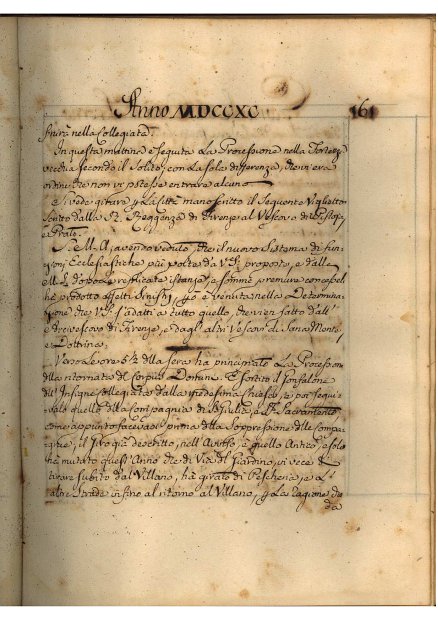 Anno MDCCXC 161
finirà nella Collegiata.
In questa mattina è seguita La Processione nella Fortezza
vecchia secondo il Solito; con La sola differenza, che vi era
ordine, che non vi potesse entrare alcuno
Si vede girare La Città manoscritto il Seguente Viglietto
Scritto dalla Reggenza di Firenze al Vescovo di Pistoja,
e Prato.
S. M. A. avendo veduto, che il nuovo Sistema di fun:
zioni Ecclesiastiche più volte da V. S. proposto, e dalla
M. S. dopo Le replicate istanze, e somme premure
che prodotto effetti è venuta nella Determina
zione, che V. S. s'adatti a tutto quello, che vien fatto dall'
Arcivescovo di Firenze, e dagl' altri Vescovi di Sana Mente,
e Dottrina;
Verso Le ore 5½ della Sera ha principiato La Processione
della ritornata del Corpus Domini. È sortito il Gonfalone
dell' Insigne Collegiata dalla Chiesa, e poi segui:
valo quello della Compagnia di S. Giulia, e SS. Sacramento
come appunto facevasi prima della Soppressione delle Compa:
gnie; il giro già descritto, nell' Avviso, è quello Antico, e solo
ha mutato quest' Anno che di Via del Giardino, in vece di
tirare subito dal Villano, ha girato di Pescheria, e L'
altre Strade infino al ritorno al Villano, La Cagione
da